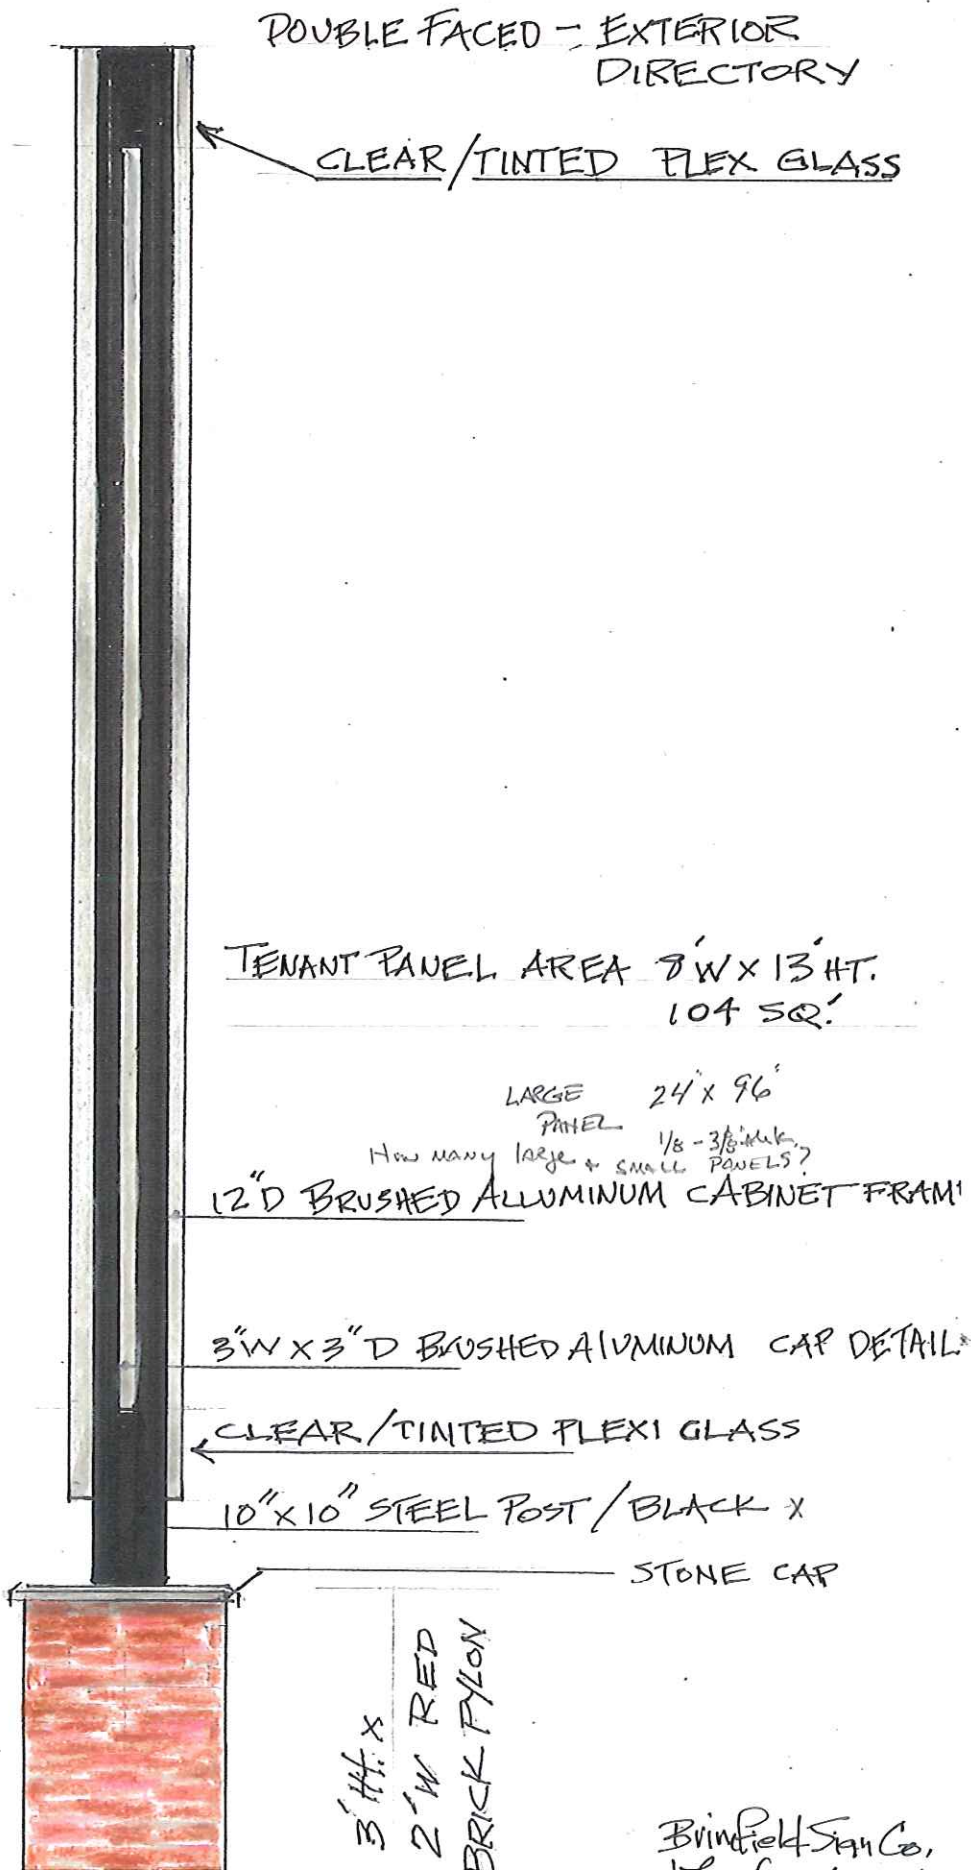 DOUBLE FACED - EXTERIOR
DIRECTORY
CLEAR/TINTED PLEX GLASS
TENANT PANEL AREA 8'W X 13'HT.
104 SQ.'
LARGE 24" X 96"
PANEL 1/8 - 3/8" thk.
How many large + SMALL PANELS?
12"D BRUSHED ALLUMINUM CABINET FRAM
3"W X 3"D BRUSHED ALUMINUM CAP DETAIL
CLEAR/TINTED PLEXI GLASS
10"X10" STEEL POST/BLACK X
STONE CAP
3' Ht. X
2'W RED
BRICK PYLON
Brimfield Sign Co.